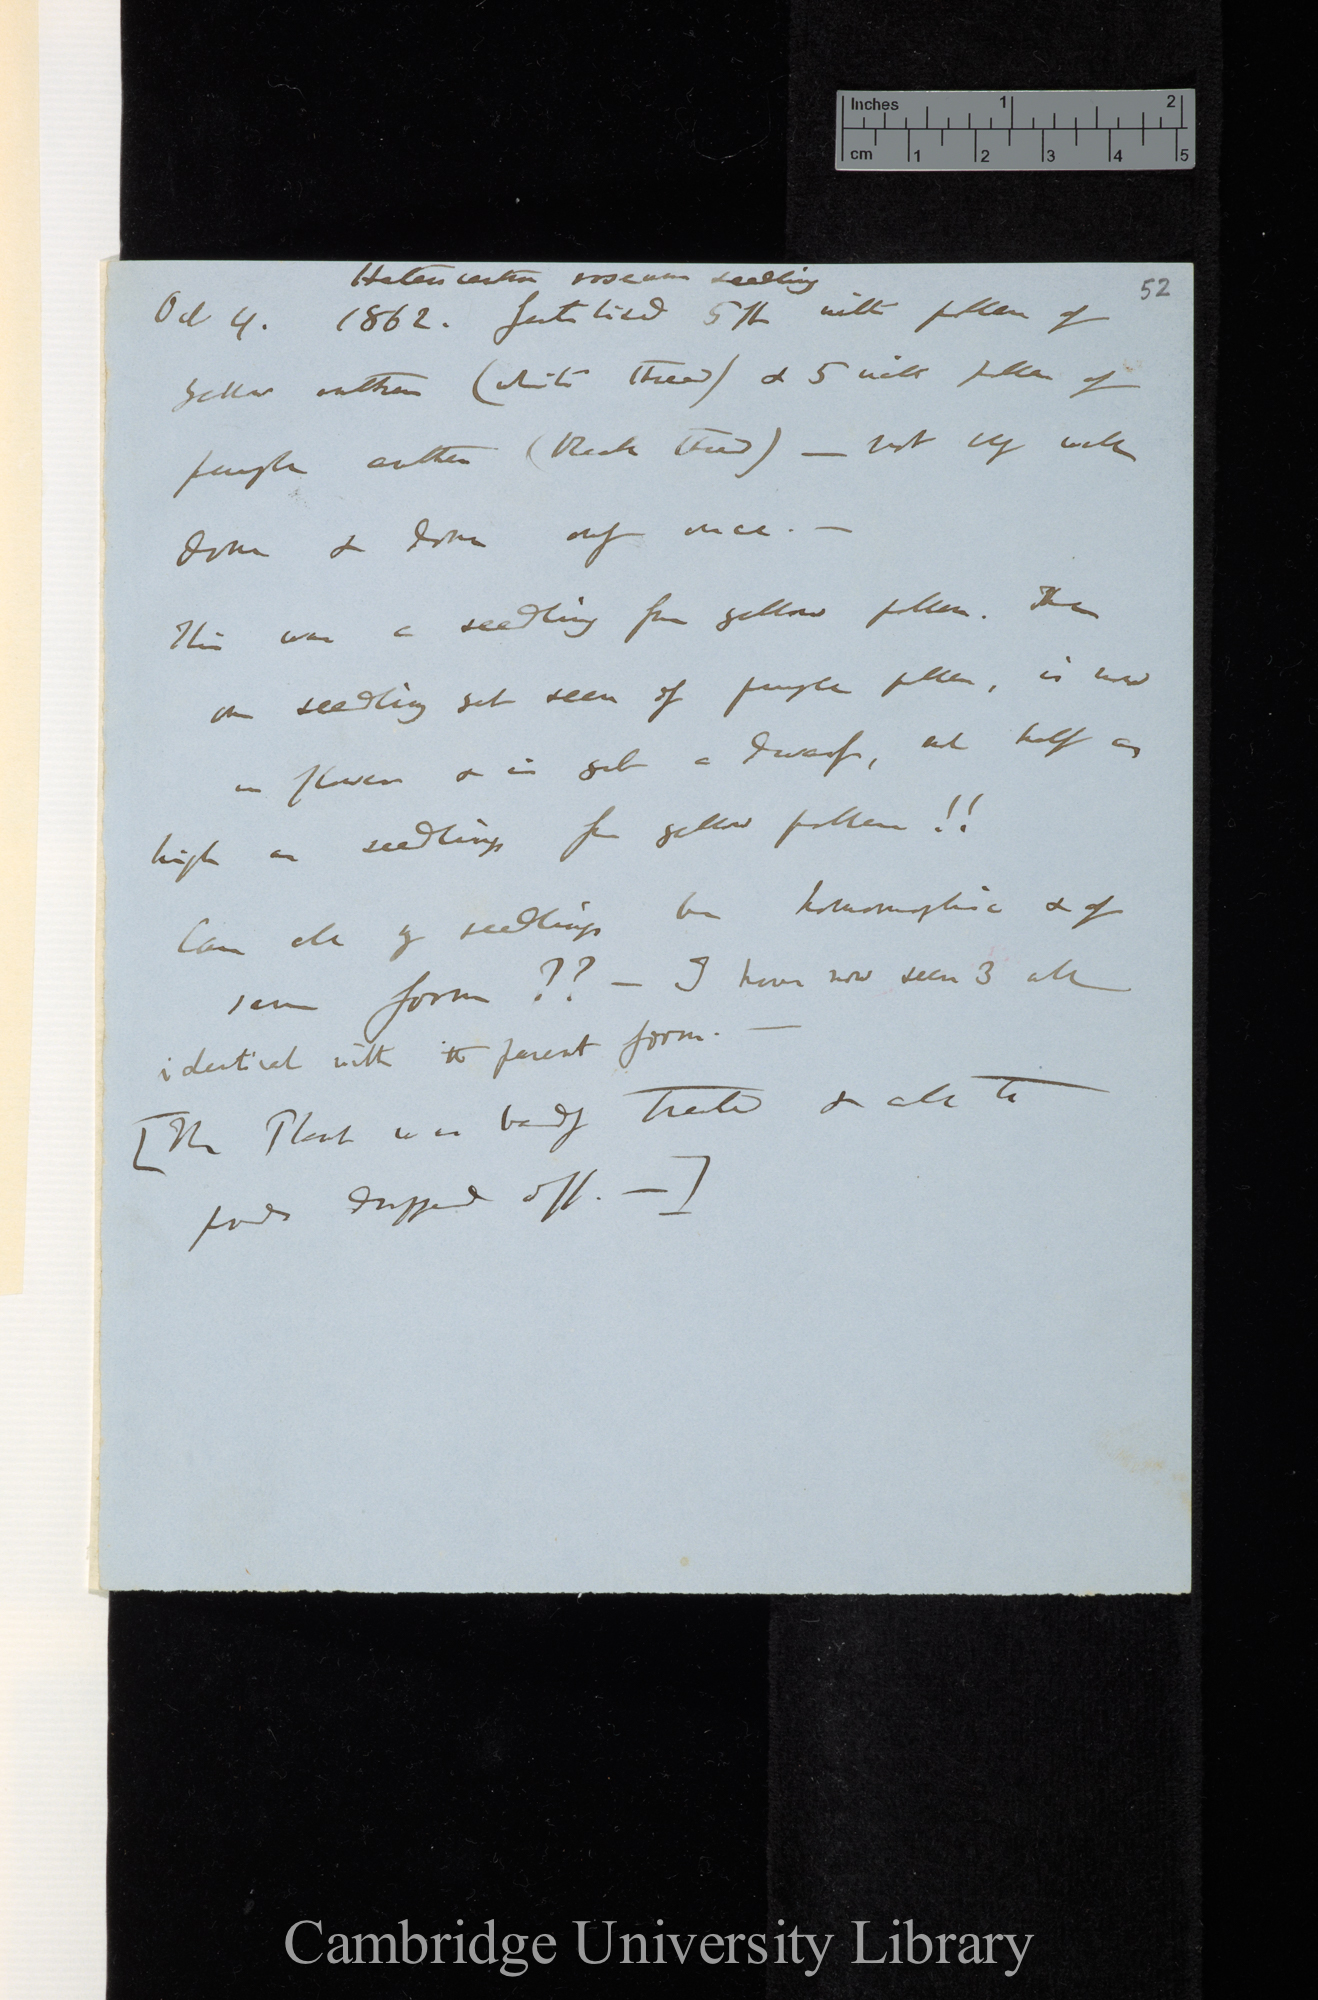 Inches 1 2
cm 1 2 3 4 5
52
Heterocentron roseum seedling
Oct 4. 1862. fertilised 5 fl with pollen of
yellow anthers (white thread) & 5 with pollen of
purple anthers (black thread) — not very well
done & done only once. —
This was a seedling from yellow pollen. The
one seedling yet seen of purple pollen, is now
in flower & is yet a dwarf, not half as
high as seedlings from yellow pollen!!
Can all my seedlings be homomorphic & of
same form ?? — I have now seen 3 all
identical with the parent form. —
[The Plant was badly treated & all the
pods dropped off. —]
Cambridge University Library